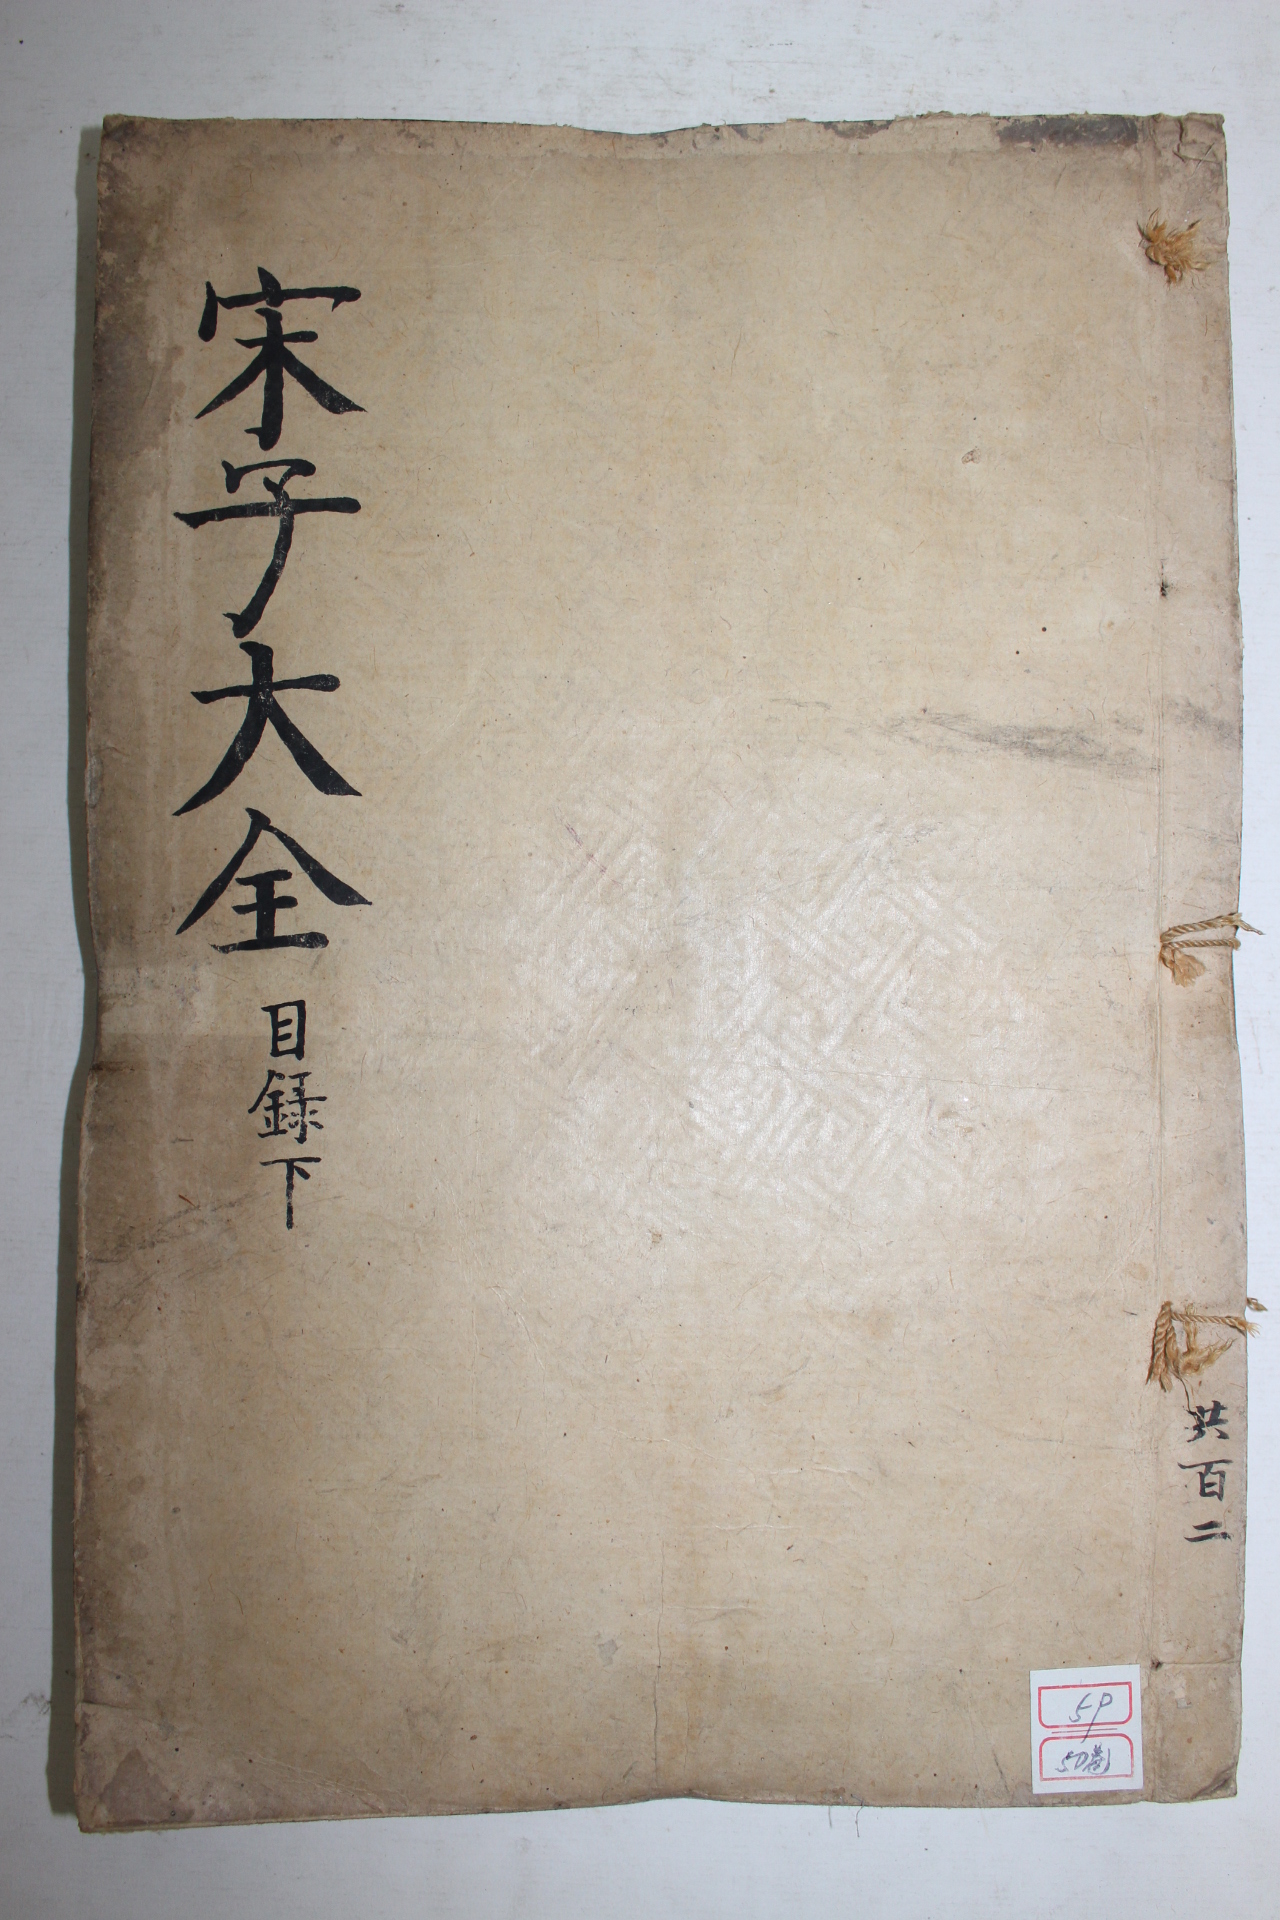 宋子大全
目録下
共百二
59
50卷